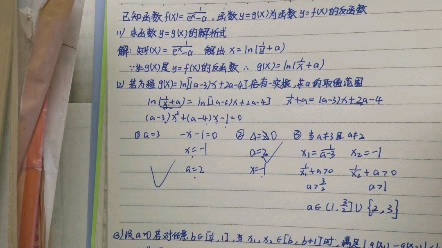 已知函数 f(x)= 1/(e^x-a), 函数 y=g(x)为函数 y=f(x)的反函数
(1) 求函数 y=g(x)的解析式
解: 知f(x)= 1/(e^x-a) 解出 x=ln(1/x+a)
∵y=g(x)是y=f(x)的反函数 ∴ g(x)=ln(1/x+a)
(2) 若方程 g(x)=ln[(a-3)x+2a-4]恰有一实根,求a的取值范围
ln(1/x+a)=ln[(a-3)x+2a-4] 1/x+a=(a-3)x+2a-4
(a-3)x²+(a-4)x-1=0
① a=3 -x-1=0 ② Δ=0 ③ 当a≠3且a≠2
x=-1 a=2 x₁=1/(a-3) x₂=-1
a=2 x=-1 1/x₁+a>0 1/x₂+a>0
a>3/2 a>1
a∈(1,3/2]∪{2,3}
(3) 设a>0若对任意b∈[1/4,1],当x₁,x₂∈[b,b+1]时,满足